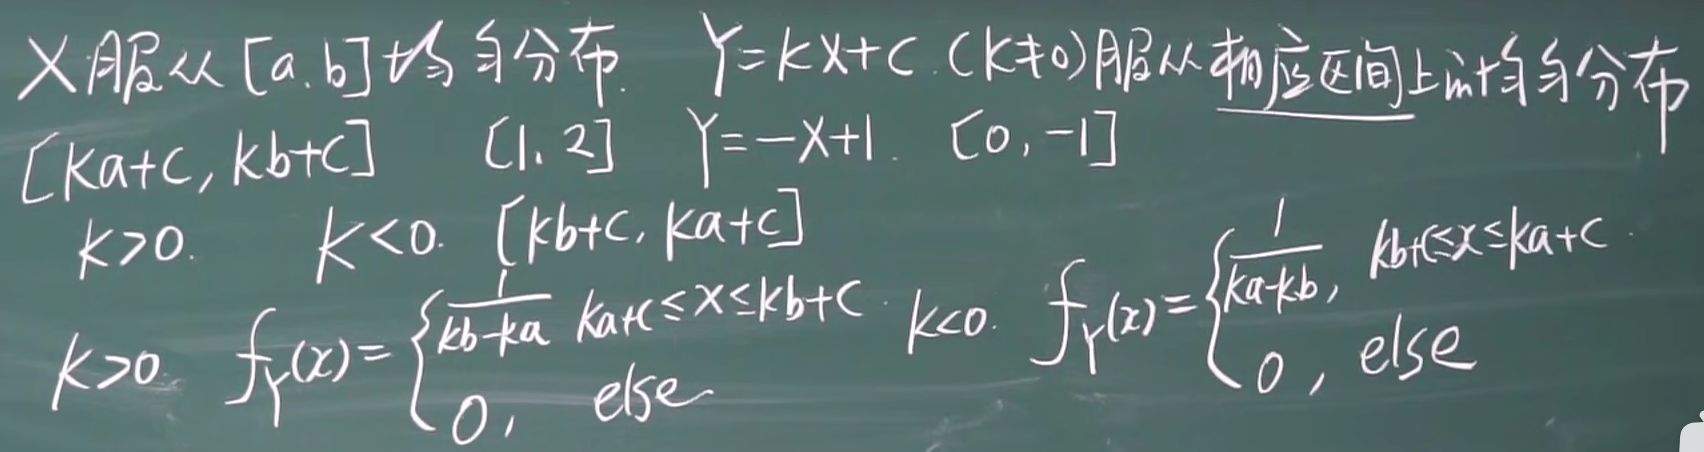 X服从[a.b]均匀分布. Y=kX+C.(k≠0)服从相应区间上的均匀分布
[ka+c, kb+c] [1, 2] Y=-X+1. [0, -1]
k>0. k<0. [kb+c, ka+c]
k>0. f_Y(x)={1/(kb-ka) ka+c≤x≤kb+c. k<0. f_Y(x)={1/(ka-kb), kb+c≤x≤ka+c.
0, else 0, else